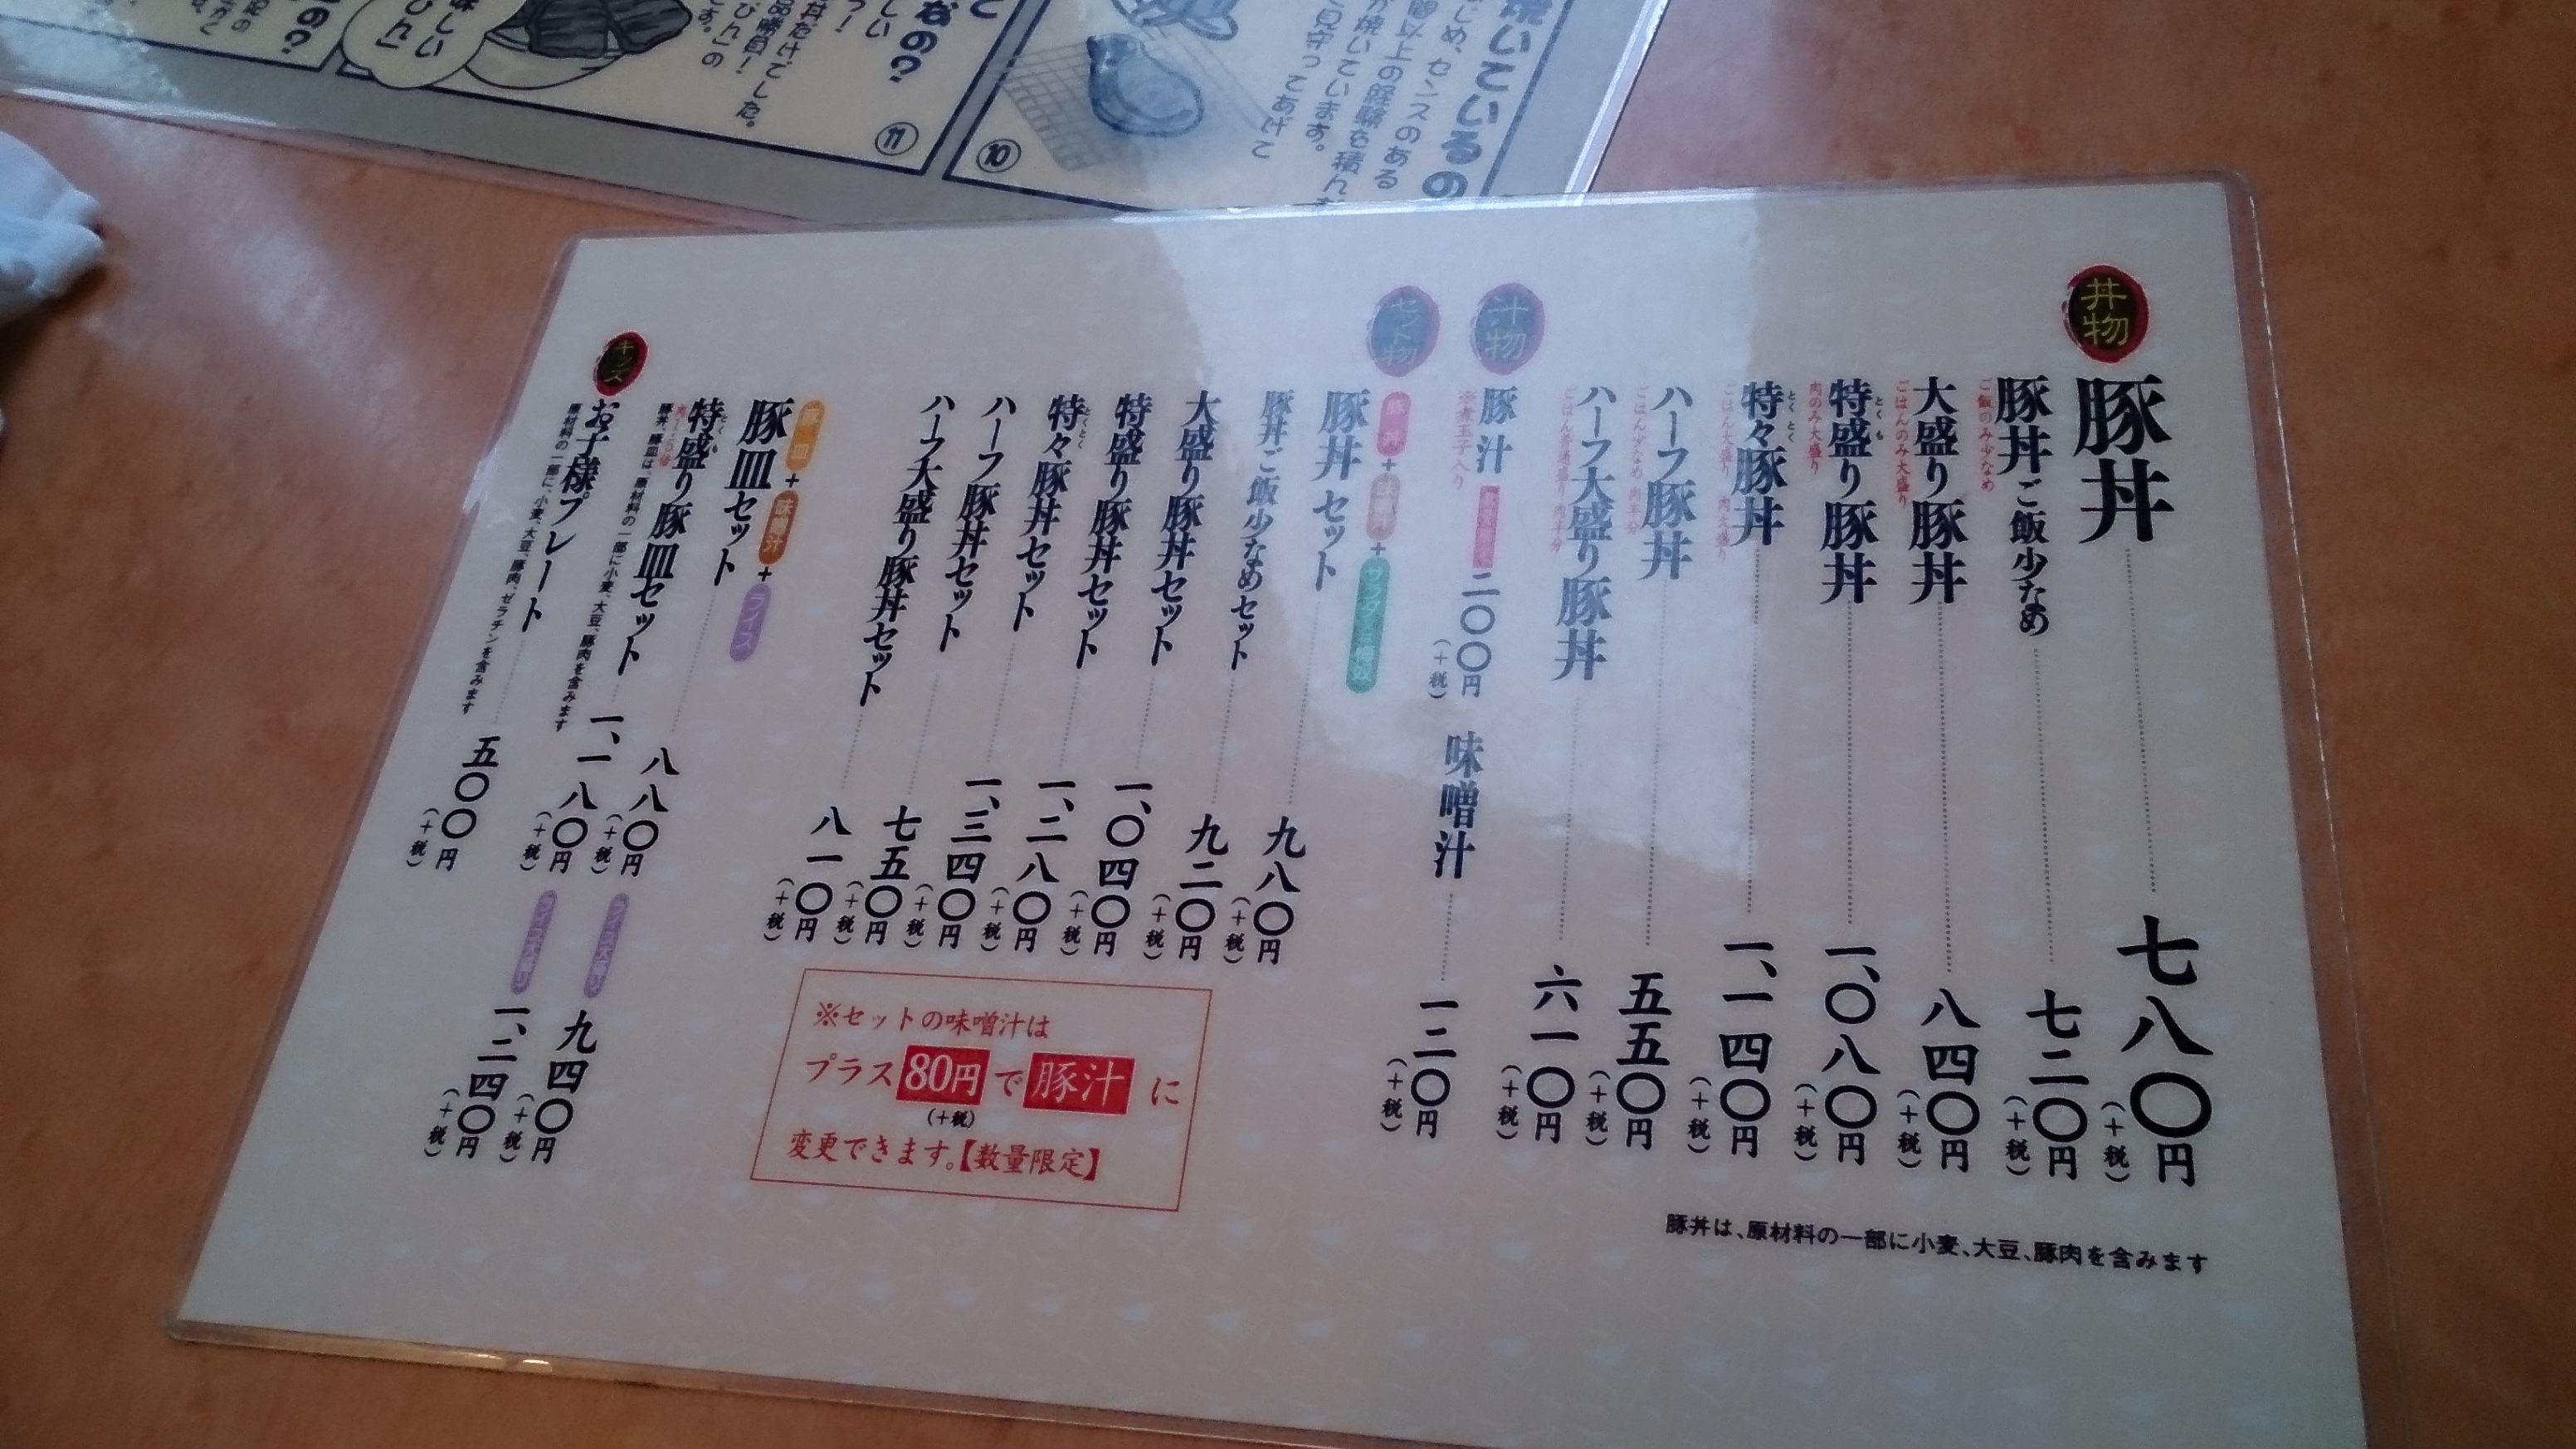 丼物
豚丼 七八〇円(+税)
豚丼ご飯少なめ 七二〇円(+税)
ご飯のみ少なめ
大盛り豚丼 八四〇円(+税)
ごはんのみ大盛り
特盛り豚丼 一、〇八〇円(+税)
とくも
肉のみ大盛り
特々豚丼 一、一四〇円(+税)
とくとく
ごはん大盛り 肉大盛り
ハーフ豚丼 五五〇円(+税)
ごはん少なめ 肉半分
ハーフ大盛り豚丼 六一〇円(+税)
ごはん普通盛り 肉半分
豚丼は、原材料の一部に小麦、大豆、豚肉を含みます
汁物
豚汁 数量限定 二〇〇円(+税)
※煮玉子入り
味噌汁 一二〇円(+税)
セット物
豚丼+味噌汁+サラダ
豚丼セット 九八〇円(+税)
豚丼ご飯少なめセット 九二〇円(+税)
大盛り豚丼セット 一、〇四〇円(+税)
特盛り豚丼セット 一、二八〇円(+税)
特々豚丼セット 一、三四〇円(+税)
とくとく
ハーフ豚丼セット 七五〇円(+税)
ハーフ大盛り豚丼セット 八一〇円(+税)
※セットの味噌汁は
プラス80円で豚汁に
(+税)
変更できます。【数量限定】
豚皿+味噌汁+ライス
豚皿セット 八八〇円(+税) ライス大盛り 九四〇円(+税)
特盛り豚皿セット 一、一八〇円(+税) ライス大盛り 一、二四〇円(+税)
とくも
豚丼、豚皿は、原材料の一部に小麦、大豆、豚肉を含みます
キッズ
お子様プレート 五〇〇円(+税)
原材料の一部に、小麦、大豆、豚肉、ゼラチンを含みます
焼いているの
センスのある
間以上の経験を積んだ
が焼いています。
見守ってあげて
⑩
なの?
しい
丼だけでした。
品勝負!
⑪
味しい